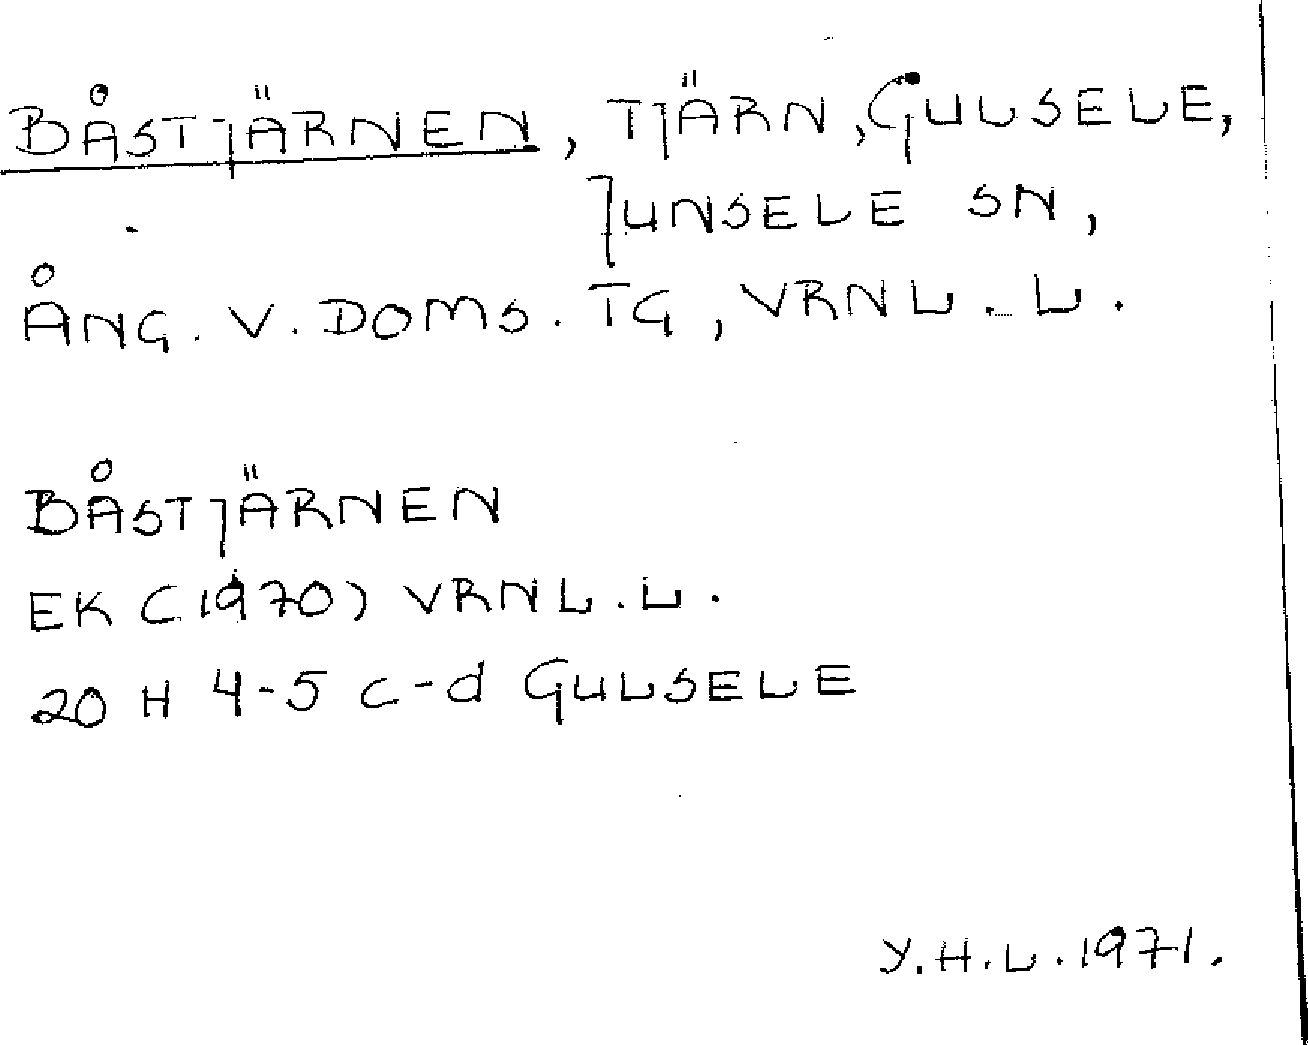 BÅSTJÄRNEN, TJÄRN, GULSELE,
JUNSELE SN,
ÅNG. V. DOMS. TG, VRNL. L.
BÅSTJÄRNEN
EK (1970) VRNL. L.
20 H 4-5 c-d GULSELE
Y.H.L. 1971.